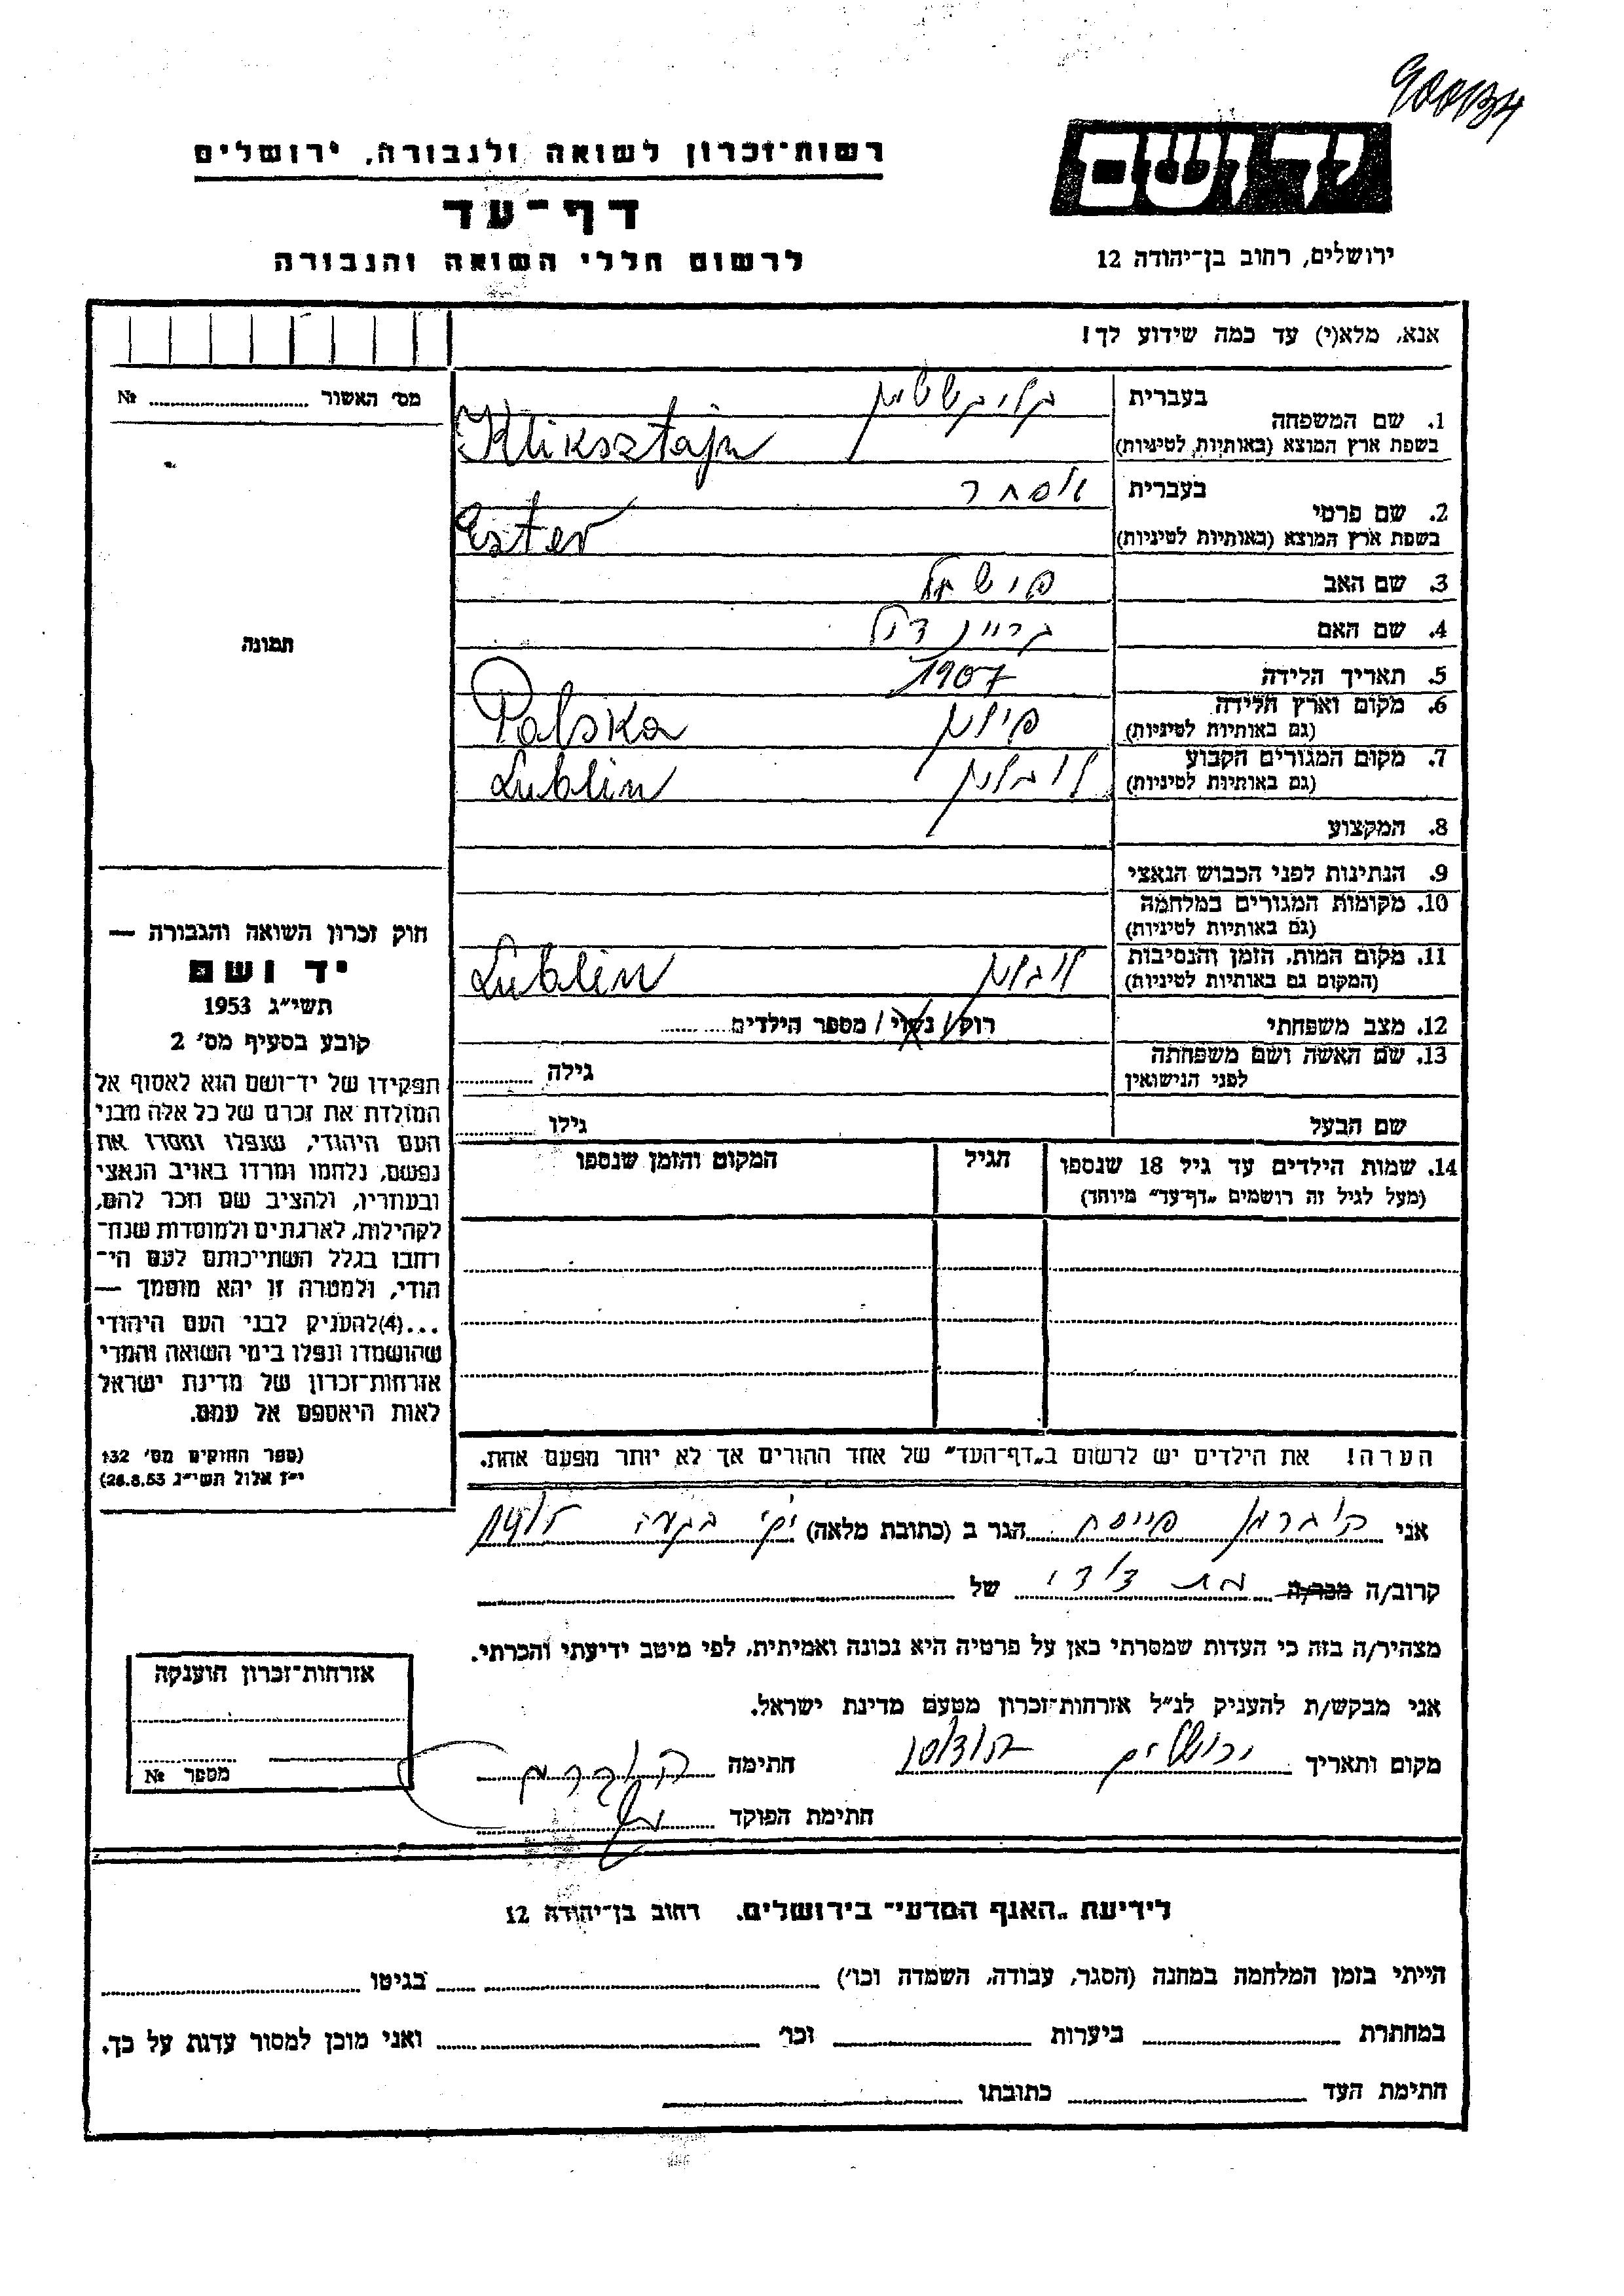 900134
יד ושם
ירושלים, רחוב בן־יהודה 12
רשות־זכרון לשואה ולגבורה, ירושלים
דף־עד
לרשום חללי השואה והגבורה
אנא, מלא(י) עד כמה שידוע לך!
מס׳ האשור № ....................
תמונה
בעברית
1. שם המשפחה
בשפת ארץ המוצא (באותיות לטיניות) Kliksztajn
בעברית אסתר
2. שם פרטי
בשפת ארץ המוצא (באותיות לטיניות) Ester
3. שם האב פישל
4. שם האם
5. תאריך הלידה 1907
6. מקום וארץ הלידה פולין Polska
(גם באותיות לטיניות)
7. מקום המגורים הקבוע לובלין Lublin
(גם באותיות לטיניות)
8. המקצוע
9. הנתינות לפני הכבוש הנאצי
10. מקומות המגורים במלחמה
(גם באותיות לטיניות)
11. מקום המות, הזמן והנסיבות לובלין Lublin
(המקום גם באותיות לטיניות)
12. מצב משפחתי רוק/ נשוי / מספר הילדים ........
13. שם האשה ושם משפחתה גילה ........
לפני הנישואין
שם הבעל גילו ........
14. שמות הילדים עד גיל 18 שנספו הגיל המקום והזמן שנספו
(מעל לגיל זה רושמים „דף־עד״ מיוחד)
הערה! את הילדים יש לרשום ב„דף־העד״ של אחד ההורים אך לא יותר מפעם אחת.
חוק זכרון השואה והגבורה —
יד ושם
תשי״ג 1953
קובע בסעיף מס׳ 2
תפקידו של יד־ושם הוא לאסוף אל
המולדת את זכרם של כל אלה מבני
העם היהודי, שנפלו ומסרו את
נפשם, נלחמו ומרדו באויב הנאצי
ובעוזריו, ולהציב שם וזכר להם,
לקהילות, לארגונים ולמוסדות שנח־
רחבו בגלל השתייכותם לעם הי־
הודי, ולמטרה זו יהא מוסמך —
...(4)להעניק לבני העם היהודי
שהושמדו ונפלו בימי השואה והמרי
אזרחות־זכרון של מדינת ישראל
לאות היאספם אל עמם.
(ספר החוקים מס׳ 132
י״ז אלול תשי״ג 28.8.53)
אני הוברמן פייסח הגר ב (כתובת מלאה)
קרוב/ה מכר/ה בת דודי של
מצהיר/ה בזה כי העדות שמסרתי כאן על פרטיה היא נכונה ואמיתית, לפי מיטב ידיעתי והכרתי.
אני מבקש/ת להעניק לנ״ל אזרחות־זכרון מטעם מדינת ישראל.
מקום ותאריך ירושלים חתימה הוברמן
חתימת הפוקד
אזרחות־זכרון הוענקה
מספר №
לידיעת „האגף המדעי״ בירושלים. רחוב בן־יהודה 12
הייתי בזמן המלחמה במחנה (הסגר, עבודה, השמדה וכו׳) בגיטו
במחתרת ביערות וכו׳ ואני מוכן למסור עדות על כך.
חתימת העד כתובתו